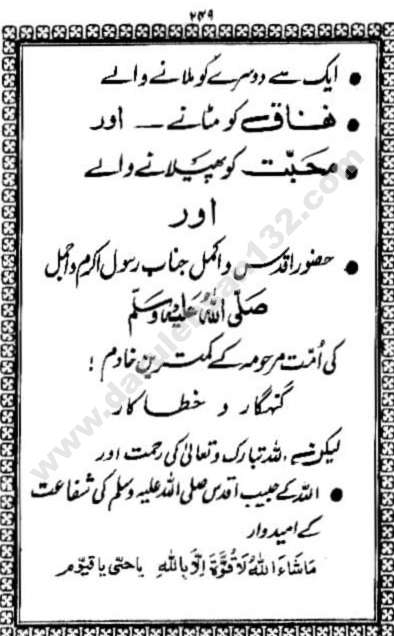 ۲۴۹
• ایک سے دوسرے کو ملانے والے
• نفاق کو مٹانے — اور
• محبّت کو پھیلانے والے
اور
• حضور اقدس و اکمل جناب رسول اکرم و اجمل
صَلَّی اللّٰہُ عَلَیْہِ وَسَلَّم
کی اُمّت مرحومہ کے کمترین خادم !
گنہگار و خطا کار
لیکن اللہ تبارک و تعالیٰ کی رحمت اور
• اللہ کے حبیب اقدس صلی اللہ علیہ وسلم کی شفاعت
کے امیدوار
مَاشَاءَ اللّٰہُ لَا قُوَّۃَ اِلَّا بِاللّٰہِ یا حیّ یا قیّوم